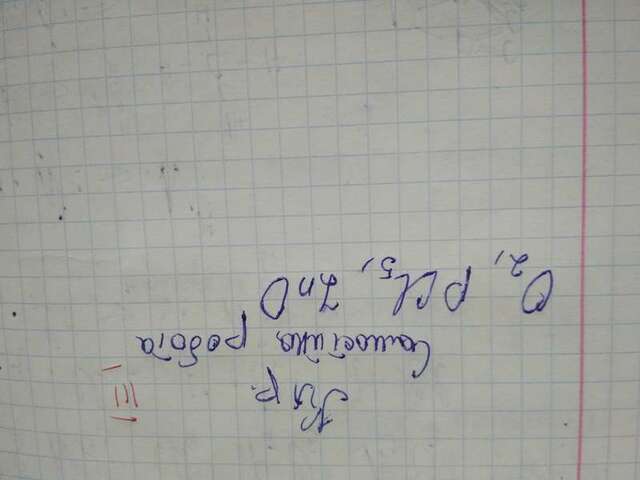 III
Самостійна робота
O₂, PCl₅, ZnO